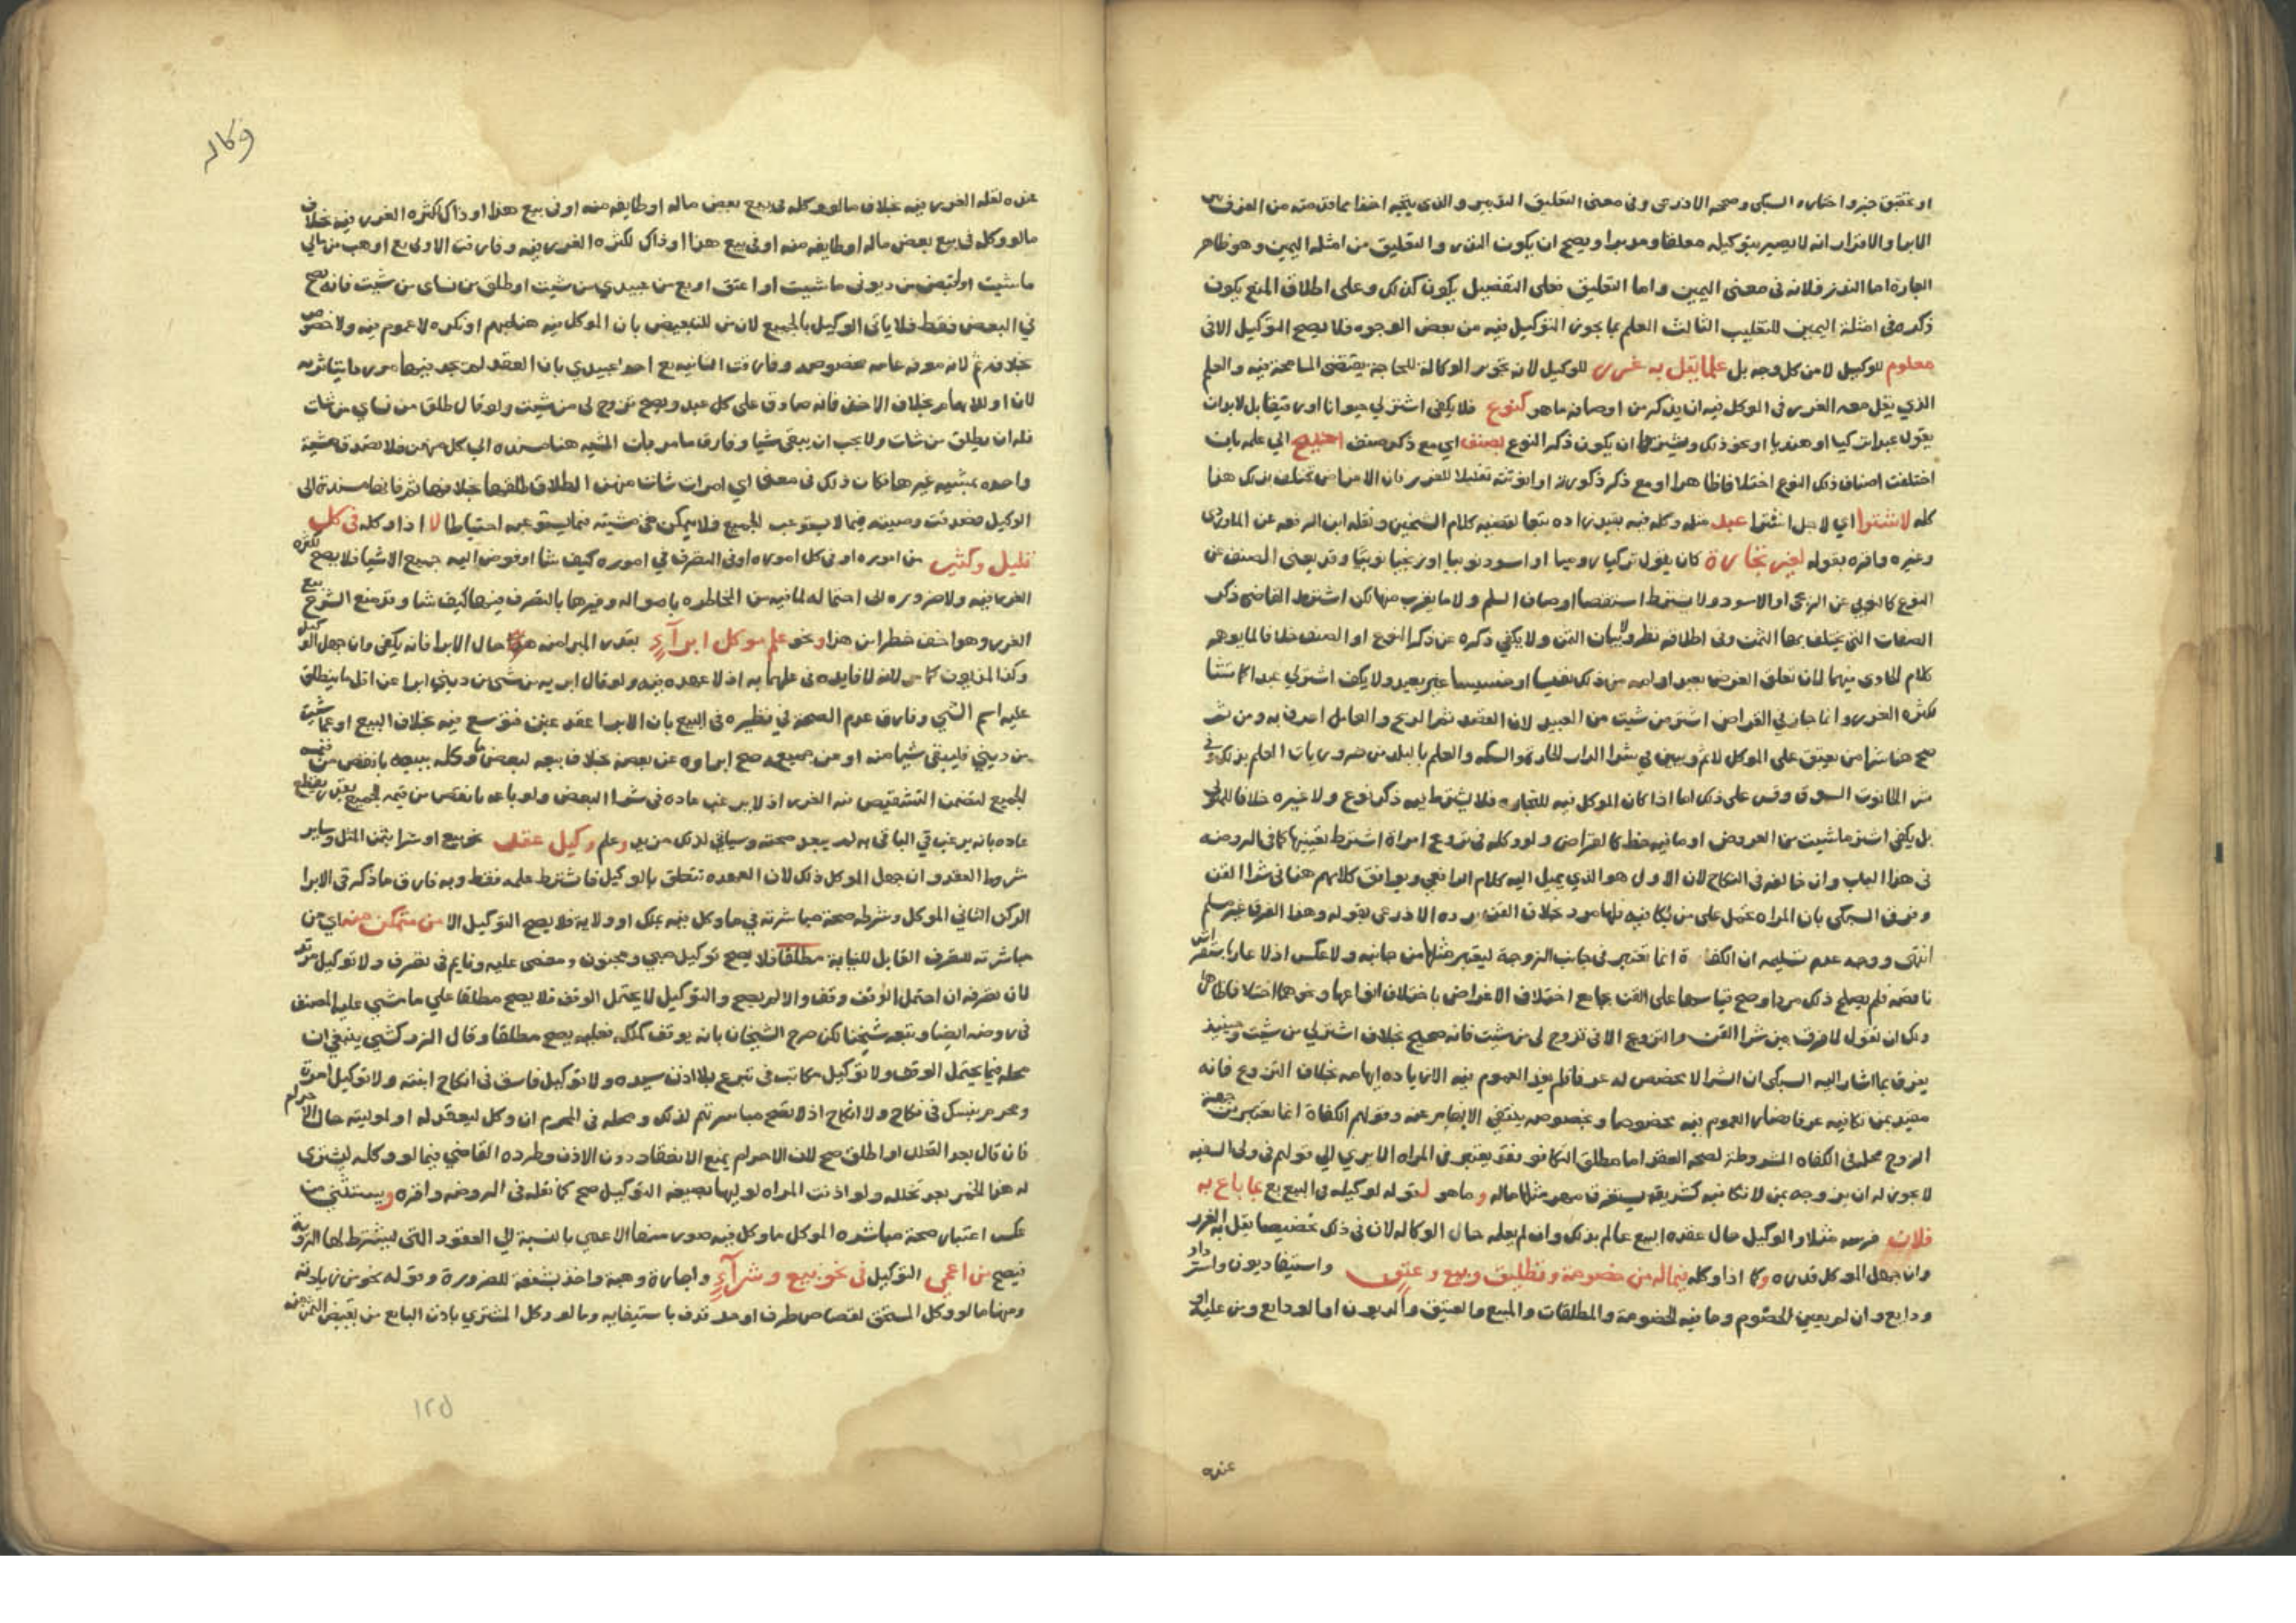 او تحقق خبر واختاره السبكي وصححه الاذرعي وفي معنى التعليق التدبير والذي يتجه اخذا مما
الابرا والاقرار انه لا يصير بتوكيله معلقا ومدبرا ويصح ان يكون النذر والتعليق من امثلة اليمين وهو ظاهر
العبارة اما النذر فلانه في معنى اليمين واما التعليق فعلى التفصيل يكون كذلك وعلى اطلاق المنع يكون
ذكره في امثلة اليمين للتغليب الثالث العلم بما يجوز التوكيل فيه من بعض الوجوه فلا يصح التوكيل الا في
معلوم للوكيل لا من كل وجه بل علما يقل به غرر للوكيل لان تجويز الوكالة للحاجة يقتضي المسامحة فيه والعلم
الذي يقل معه الغرر في الموكل فيه ان يذكر من اوصافه ما هو كنوع فلا يكفي اشتر لي حيوانا او رقيقا بل لا بد ان
يقول عبدا تركيا او هنديا او نحو ذلك ويشترط ان يكون ذكر النوع لصنف اي مع ذكر صنف احتيج الي علمه بان
اختلفت اصناف ذلك النوع اختلافا ظاهرا او مع ذكر ذكورة او انوثة تقليلا للغرر فان الاغراض تختلف بذلك هذا
كله لاشترا اي لاجل اشترا عبد مثلا وكله فيه
وغيره واقره بقوله لغير تجارة كان يقول تركيا روميا او اسود نوبيا او زنجيا نوبيا وقد يغني الصنف عن
النوع كالنوبي عن الزنجي او الاسود ولا يشترط استقصا اوصاف السلم ولا ما يقرب منها لكن اشترط القاضي ذكر
الصفات التي يختلف بها الثمن وفي اطلاقه نظر ولا بيان الثمن ولا يكفي ذكره عن ذكر النوع او الصنف خلافا لما يوهمه
كلام الحاوي فيهما لان تعلق الغرض بعبد او امة من ذلك نفيسا او خسيسا غير بعيد ولا يكفي اشتر لي عبدا كما تشا
لكثرة الغرر وانما جاز في القراض اشتر من شيت من العبيد لان العقد ثم الربح والعامل اعرف به ومن ثم
صح هنا شرا من يعتق على الموكل لا ثم ويبين في شرا الدار الحارة والسكة والعلم بالبلد من ضروريات العلم بذلك وفي
شرا الحانوت السوق وقس على ذلك اما اذا كان الموكل فيه للتجارة فلا يشترط فيه ذكر نوع ولا غيره خلافا للمتولي
بل يكفي اشتر ما شيت من العروض او ما فيه حظ كالقراض ولو وكله في تزوج امراة اشترط تعيينها كما في الروضة
في هذا الباب وان خالفه في النكاح لان الاول هو الذي يميل اليه كلام الرافعي ويوافق كلامهم هنا في شرا القن
وفرق السبكي بان المراة تحمل على من تكافيه فلها مرد بخلاف القن رده الاذرعي بقوله وهذا الفرق غير مسلم
انتهى ووجه عدم تسليمه ان الكفاة انما تعتبر في جانب الزوجة ليعتبر مثلها من جانبه ولا عكس اذ لا عار باستفراش
ناقصة فلم يصلح ذلك مردا وصح قياسها على القن بجامع اختلاف الاغراض باختلاف انواعها ونحوها اختلافا ظاهرا
ولك ان تقول لا فرق بين شرا القن والتزوج الا في تزوج لي من شيت فانه صحيح بخلاف اشتر لي من شيت وحينيذ
يفرق بما اشار اليه السبكي ان الشرا لا مخصص له عرفا فلم يفد العموم فيه الا زيادة ابهامه بخلاف التزوج فانه
مقيد بمن تكافيه عرفا فصار العموم فيه مخصوصا وبخصوصه ينتفي الابهام عنه وقولهم الكفاة انما تعتبر من جهة
الزوج محله في الكفاة المشروطة لصحة العقد اما مطلق التكافؤ فقد يعتبر في المراة الا تري الي قولهم في ولي السفيه
لا يجوز له ان يزوجه بمن لا تكافيه كشريفة يستغرق مهر مثلها ماله وما هو لقوله لوكيله في البيع بع بما باع به
فلان فرسه مثلا والوكيل حال عقده البيع عالم بذلك وان لم يعلمه حال الوكالة لان في ذلك تخصيصا يقل به الغرر
وان جهل الموكل قدره وكما اذا وكله فيما له من خصومة وتطليق وبيع وعتق واستيفا ديون واسترداد
ودايع وان لم يعين الخصوم وما فيه الخصومة والمطلقات والمبيع والعتيق والديون او الودايع ومن عليه او
عنده
وكاله
عنده لقلة الغرر فيه بخلاف ما لو وكله في بيع بعض ماله او طايفة منه او في بيع هذا او ذاك لكثرة الغرر فيه بخلاف
ما لو وكله في بيع بعض ماله او طايفة منه او في بيع هذا او ذاك لكثرة الغرر فيه وفارقت الاولى بع او هب من مالي
ما شيت او اقبض من ديوني ما شيت او اعتق او بع من عبيدي من شيت او طلق من نساي من شيت فانه يصح
في البعض فقط فلا ياتي الوكيل بالجميع لان من للتبعيض بان الموكل فيه هنا مبهم او نكرة لا عموم فيه ولا خصوص
بخلافه ثم لانه معرفة عامة مخصوصه وفارقت الثانية بع احد عبيدي بان العقد لم يجد فيها موردا يتاثر به
لان او للابهام بخلاف الاحد فانه صادق على كل عبد ويصح تزوج لي من شيت ولو قال طلق من نساي من شات
فله ان يطلق من شات ولا يجب ان يبقي شيا وفارق ما مر بان المشية هنا مسندة الى كل منهن فلا تصدق مشية
واحدة بمشية غيرها فكان ذلك في معنى اي امراة شات منهن الطلاق طلقها بخلافها ثم فانها مسندة الى
الوكيل فصدقت مشيته فيما لا يستوعب الجميع فلا يتمكن من مشيته فيما يستوعبه احتياطا لا اذا وكله في كل
قليل وكثير من اموره او في كل اموره او في التصرف في اموره كيف شا او فوض اليه جميع الاشيا فلا يصح لكثرة
الغرر فيه ولا ضرورة الى احتماله لما فيه من المخاطرة باموال وغيرها بالتصرف فيها كيف شا وقد منع الشرع بيع
الغرر وهو اخف خطرا من هذا ونحو علم موكل ابرآء بقدر المبرا منه حال الابرا فانه يكفي وان جهل الوكيل
وكذا المديون كما مر لانه لا فايدة في علمهما به اذ لا عهدة فيه ولو قال ابريه من شي من ديني ابرا عن اقل ما ينطلق
عليه اسم الشي وفارق عدم الصحة في نظيره في البيع بان الابرا عقد غبن فتوسع فيه بخلاف البيع او عما شيت
من ديني فليبقي شيا منه او عن جميعه صح ابراوه عن بعضه بخلاف بيعه لبعض ما وكله ببيعه بانقص من قيمة
الجميع لتضمن التشقيص فيه الغرر اذ لا يرغب عادة في شرا البعض ولو باعه بانقص من قيمة الجميع بقدر يقطع
عادة بانه يرغب في الباقي به لم يبعد صحته وسياتي لذلك مزيد وعلم وكيل عقد نحو بيع او شرا بثمن المثل وساير
شروط العقد وان جهل الموكل ذلك لان العهدة تتعلق بالوكيل فاشترط علمه فقط وبه فارق ما ذكر في الابرا
الركن الثاني الموكل وشرطه صحة مباشرته في ما وكل فيه بملك او ولاية فلا يصح التوكيل الا من متمكن منه اي من
مباشرته للتصرف القابل للنيابة مطلقا فلا يصح توكيل صبي ومجنون ومغمى عليه ونايم في تصرف ولا توكيل مرتد
لان تصرفه ان احتمل الوقف وقف والا لم يصح والتوكيل لا يحتمل الوقف فلا يصح مطلقا علي ما مشى عليه المصنف
في روضه ايضا وتبعه شيخنا لكن صرح الشيخان بانه يوقف كملكه فعليه يصح مطلقا وقال الزركشي ينبغي ان
محله فيما يحتمل الوقف ولا توكيل مكاتب في تبرع بلا اذن سيده ولا توكيل فاسق في انكاح ابنته ولا توكيل امراة
ومحرم بنسك في نكاح ولا انكاح اذ لا تصح مباشرتهم لذلك ومحله في المحرم ان وكل ليعقد له او لموليته حال الاحرام
فان قال بعد التحلل او اطلق صح لان الاحرام يمنع الانعقاد دون الاذن وطرده القاضي فيما لو وكله ليشتري
له هذا الخمر بعد تخلله ولو اذنت المراة لوليها بصيغة التوكيل صح كما نقله في الروضة واقره ويستثنى من
عكس اعتبار صحة مباشرة الموكل ما وكل فيه صور منها الاعمى بالنسبة الي العقود التي يشترط لها الروية
فيصح من اعمى التوكيل في نحو بيع وشرآء واجارة وهبة واخذ بشفعة للضرورة وقوله نحو من زيادته
ومنها ما لو وكل المستحق لقصاص طرف او حد قذف باستيفايه وما لو وكل المشتري باذن البايع من يقبض الثمن منه
١٢٥